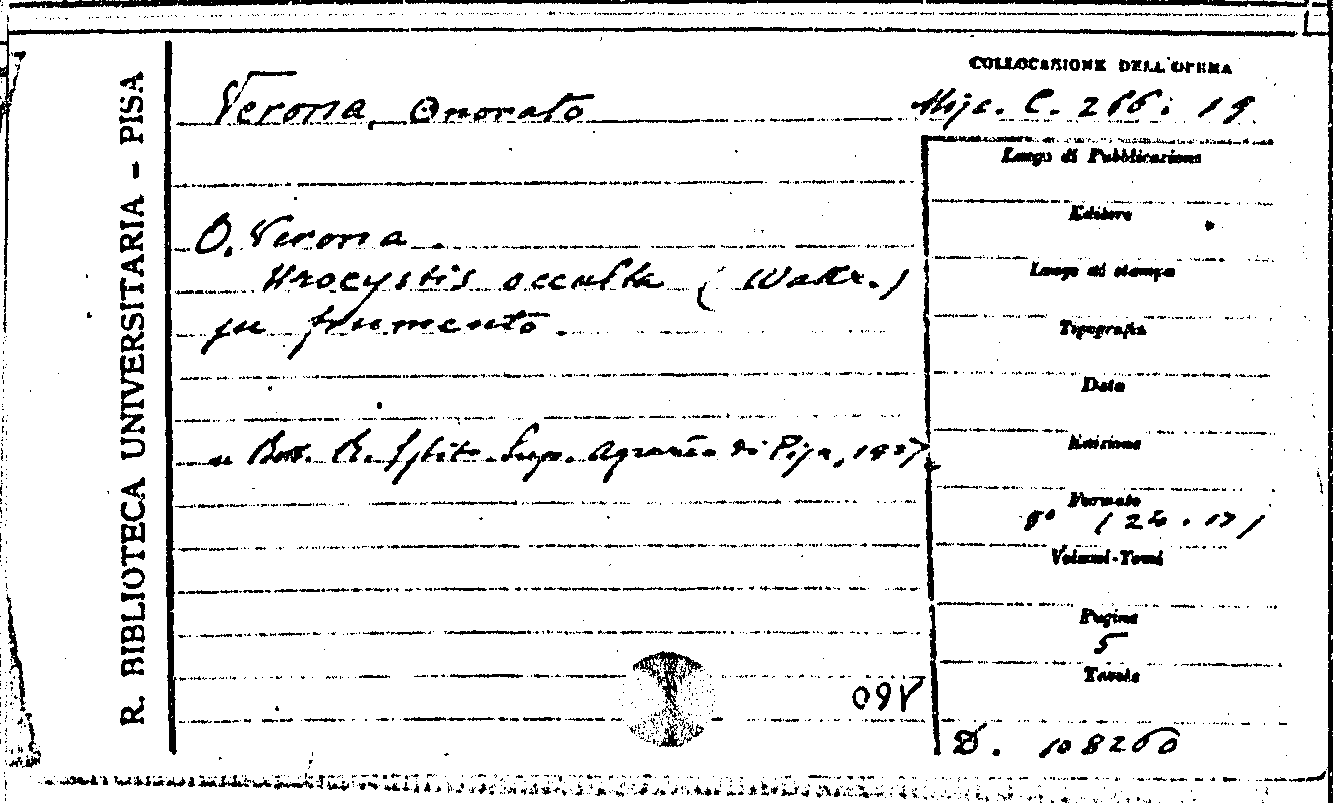 R. BIBLIOTECA UNIVERSITARIA - PISA
COLLOCAZIONE DELL'OPERA
Verona, Onorato
Misc. C. 266. 19
Luogo di Pubblicazione
Editore
O. Verona.
Urocystis occulta (Wallr.)
su frumento.
Luogo di stampa
Tipografia
Data
Edizione
Boll. R. Istito. Sup. Agrario di Pisa, 1927.
Formato
8°
Volumi-Tomi
Pagine
5
Tavole
D. 108260